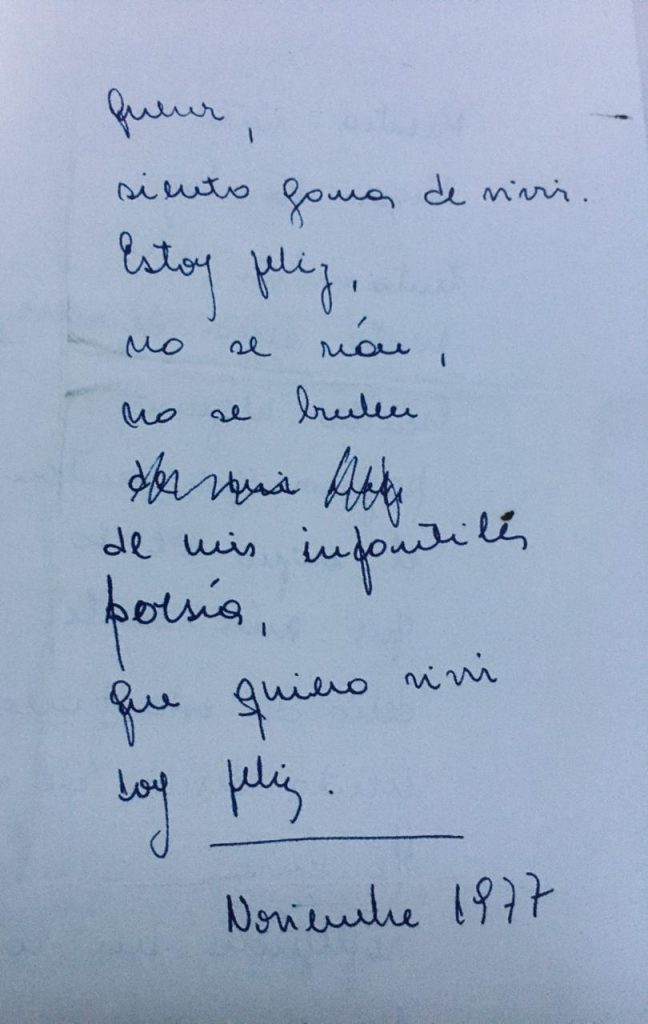 querer,
siento ganas de vivir.
Estoy feliz,
no se rían,
no se burlen
de mis infantiles
poesías,
que quiero vivir
soy feliz.
Noviembre 1977